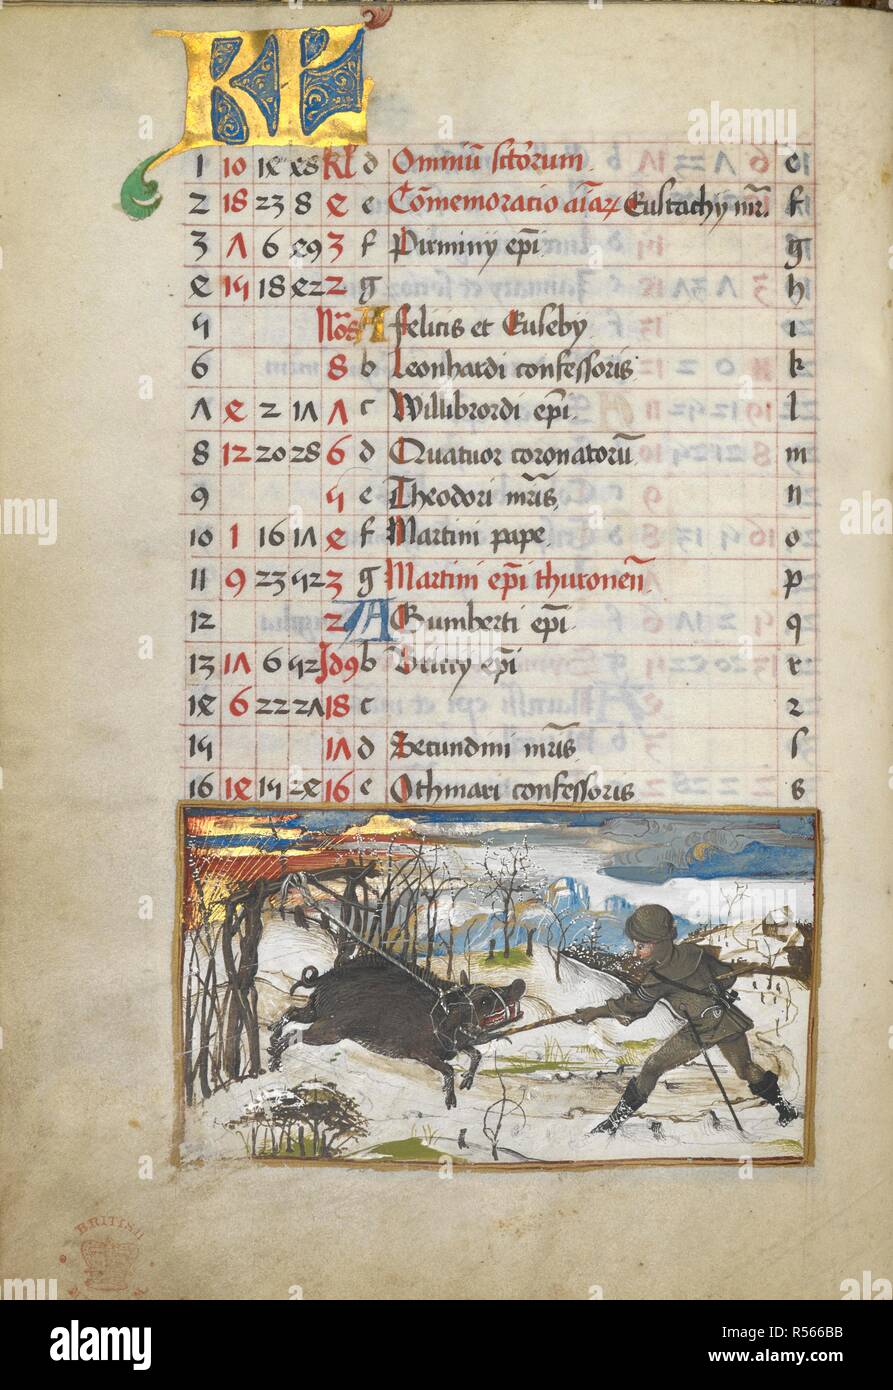 KL
1 10 14 48 kl d Omniū sctorum e
2 18 23 8 4 e Cōmemoratio aīarꝝ Eustachy mr̄. f
3 7 6 49 3 f Pirminy epī g
4 15 18 42 2 g h
5 Nōs A Felicis et Euseby i
6 8 b Leonhardi confessoris k
7 4 2 17 7 c Willibrordi epī. l
8 12 20 28 6 d Quatuor coronatorū m
9 5 e Theodori mr̄is. n
10 1 16 17 4 f Martini pape. o
11 9 23 52 3 g Martini epī thuroneñ p
12 2 A Gumberti epī. q
13 17 6 52 Jd9 b Briccy epī r
14 6 22 27 18 c 2
15 17 d Secundini mr̄is. ſ
16 14 15 24 16 e Othmari confessoris s
BRITISH
alamy
Image ID: R566BB
www.alamy.com